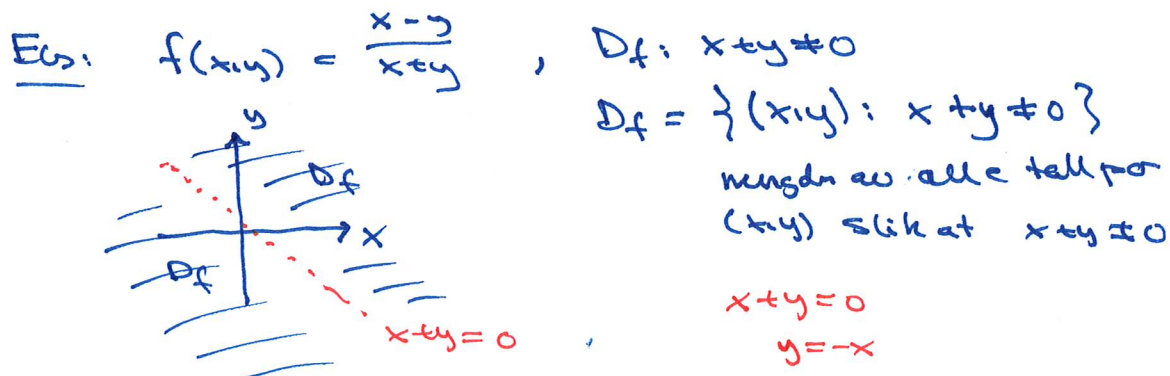 Eks: f(x,y) = (x-y)/(x+y) , Df: x+y≠0
Df = {(x,y): x+y≠0}
mengden av alle tallpar
(x,y) slik at x+y≠0
y
Df
x
Df
x+y=0
x+y=0
y=-x